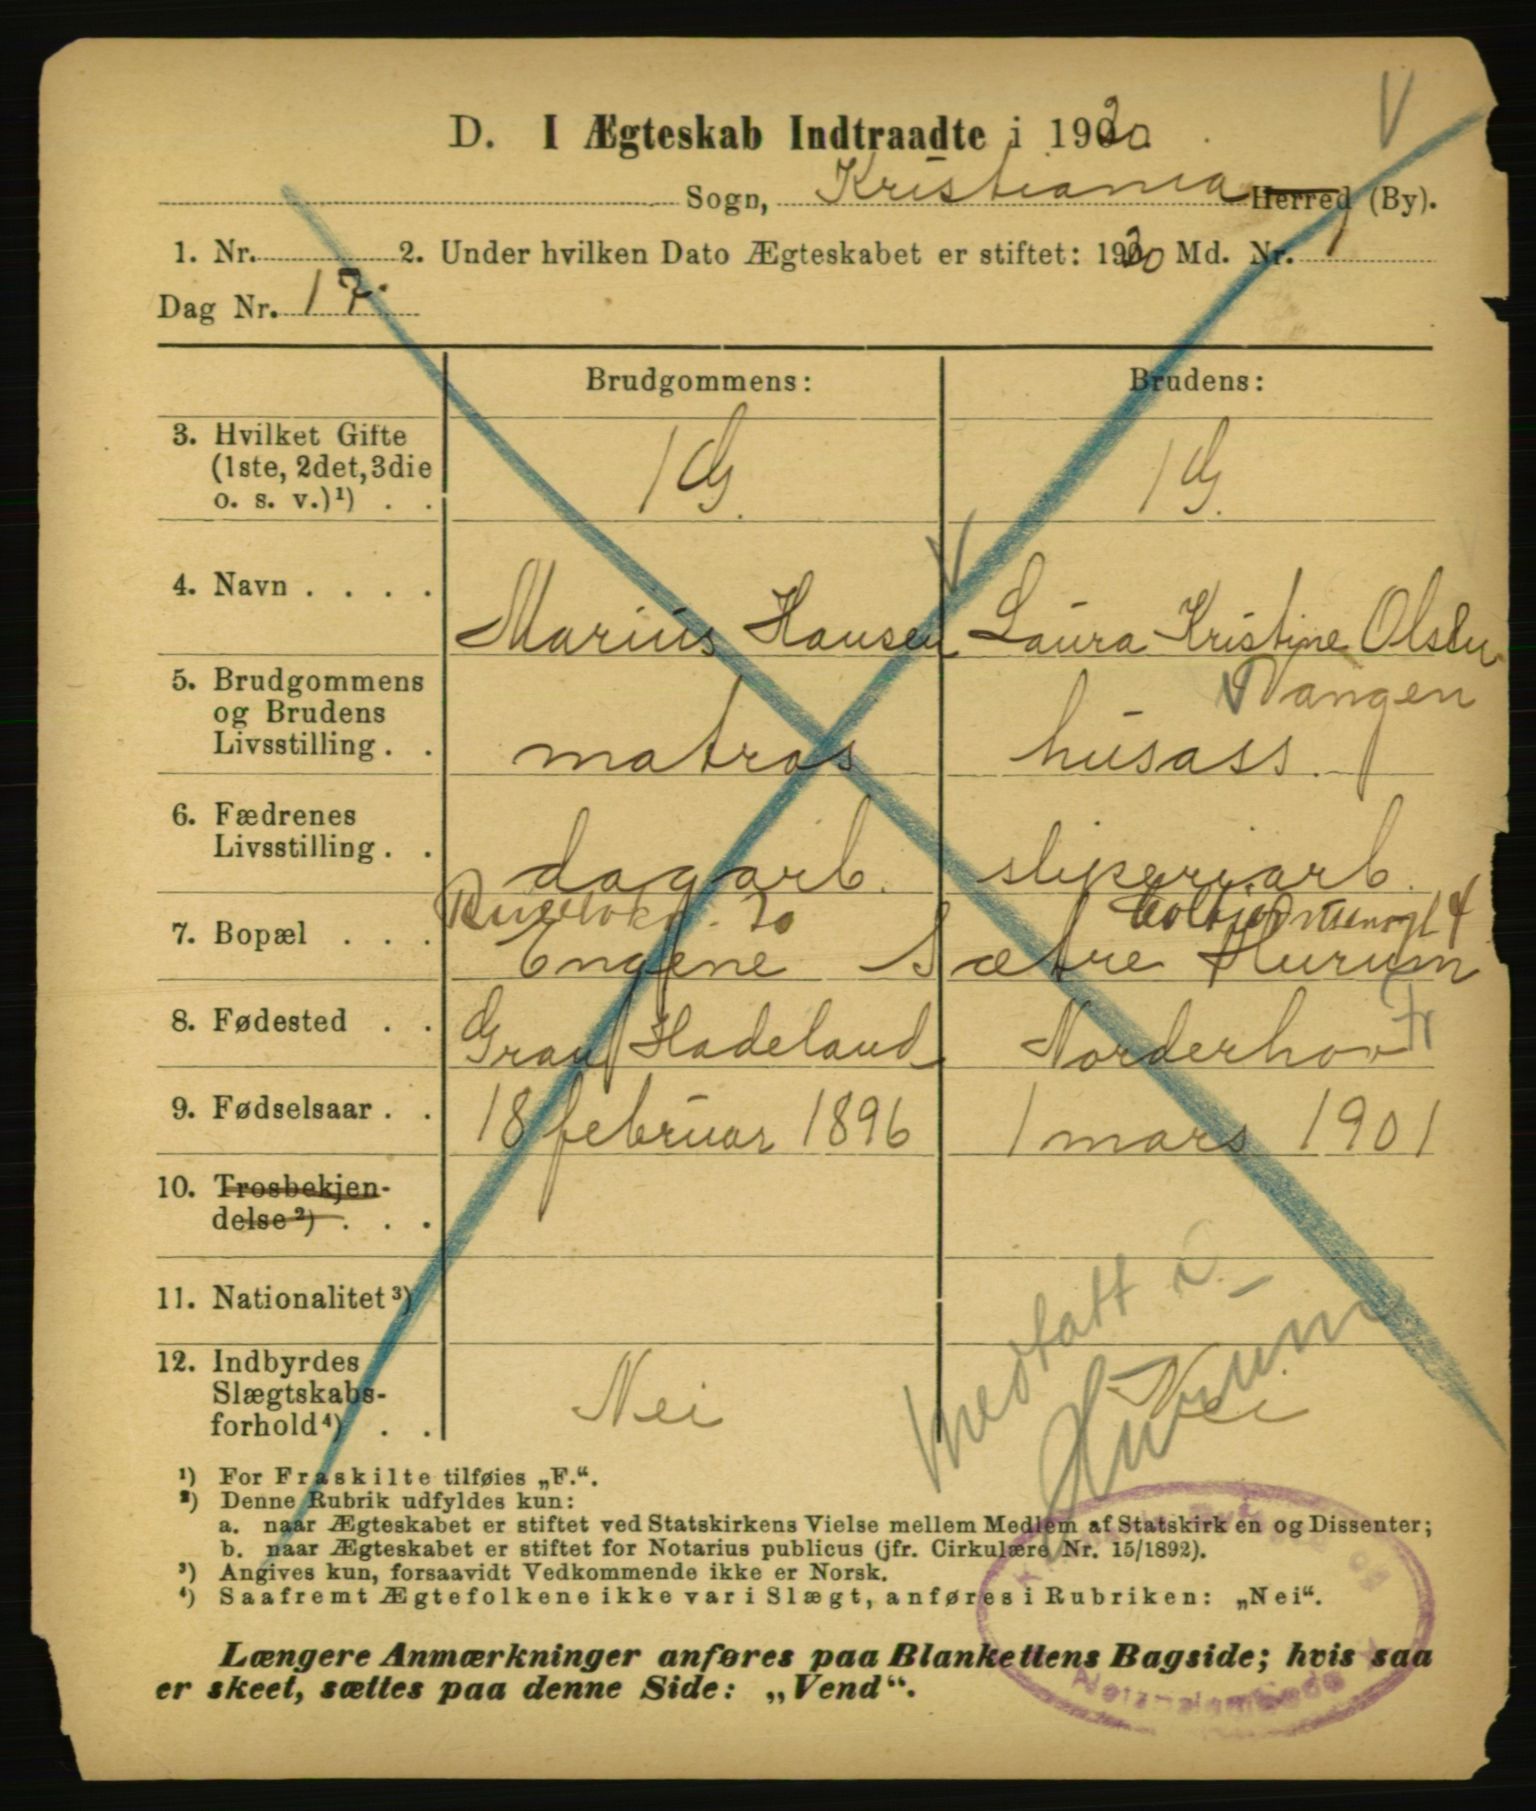 D. I Ægteskab Indtraadte i 1920.
Sogn, Kristiania Herred (By).
1. Nr. 2. Under hvilken Dato Ægteskabet er stiftet: 1920 Md. Nr. 1
Dag Nr. 17.
Brudgommens: Brudens:
3. Hvilket Gifte
(1ste, 2det, 3die
o. s. v.)¹) . . 1 G. 1 G.
4. Navn . . . . Marius Hansen Laura Kristine Olsen
Vangen
5. Brudgommens
og Brudens
Livsstilling . . matros husass.
6. Fædrenes
Livsstilling . . dagarb. sliperiarb.
20 4
7. Bopæl . . . Engene Sætre Hurum
8. Fødested . . Gran Hadeland Norderhov
9. Fødselsaar . . 18 februar 1896 1 mars 1901
10. Trosbekjen-
delse²) . . .
11. Nationalitet³)
medtatt i
Hurum
12. Indbyrdes
Slægtskabs-
forhold⁴) . . Nei Nei
¹) For Fraskilte tilføies „F.“.
²) Denne Rubrik udfyldes kun:
a. naar Ægteskabet er stiftet ved Statskirkens Vielse mellem Medlem af Statskirken og Dissenter;
b. naar Ægteskabet er stiftet for Notarius publicus (jfr. Cirkulære Nr. 15/1892).
³) Angives kun, forsaavidt Vedkommende ikke er Norsk.
⁴) Saafremt Ægtefolkene ikke var i Slægt, anføres i Rubriken: „Nei“.
Længere Anmærkninger anføres paa Blankettens Bagside; hvis saa
er skeet, sættes paa denne Side: „Vend“.